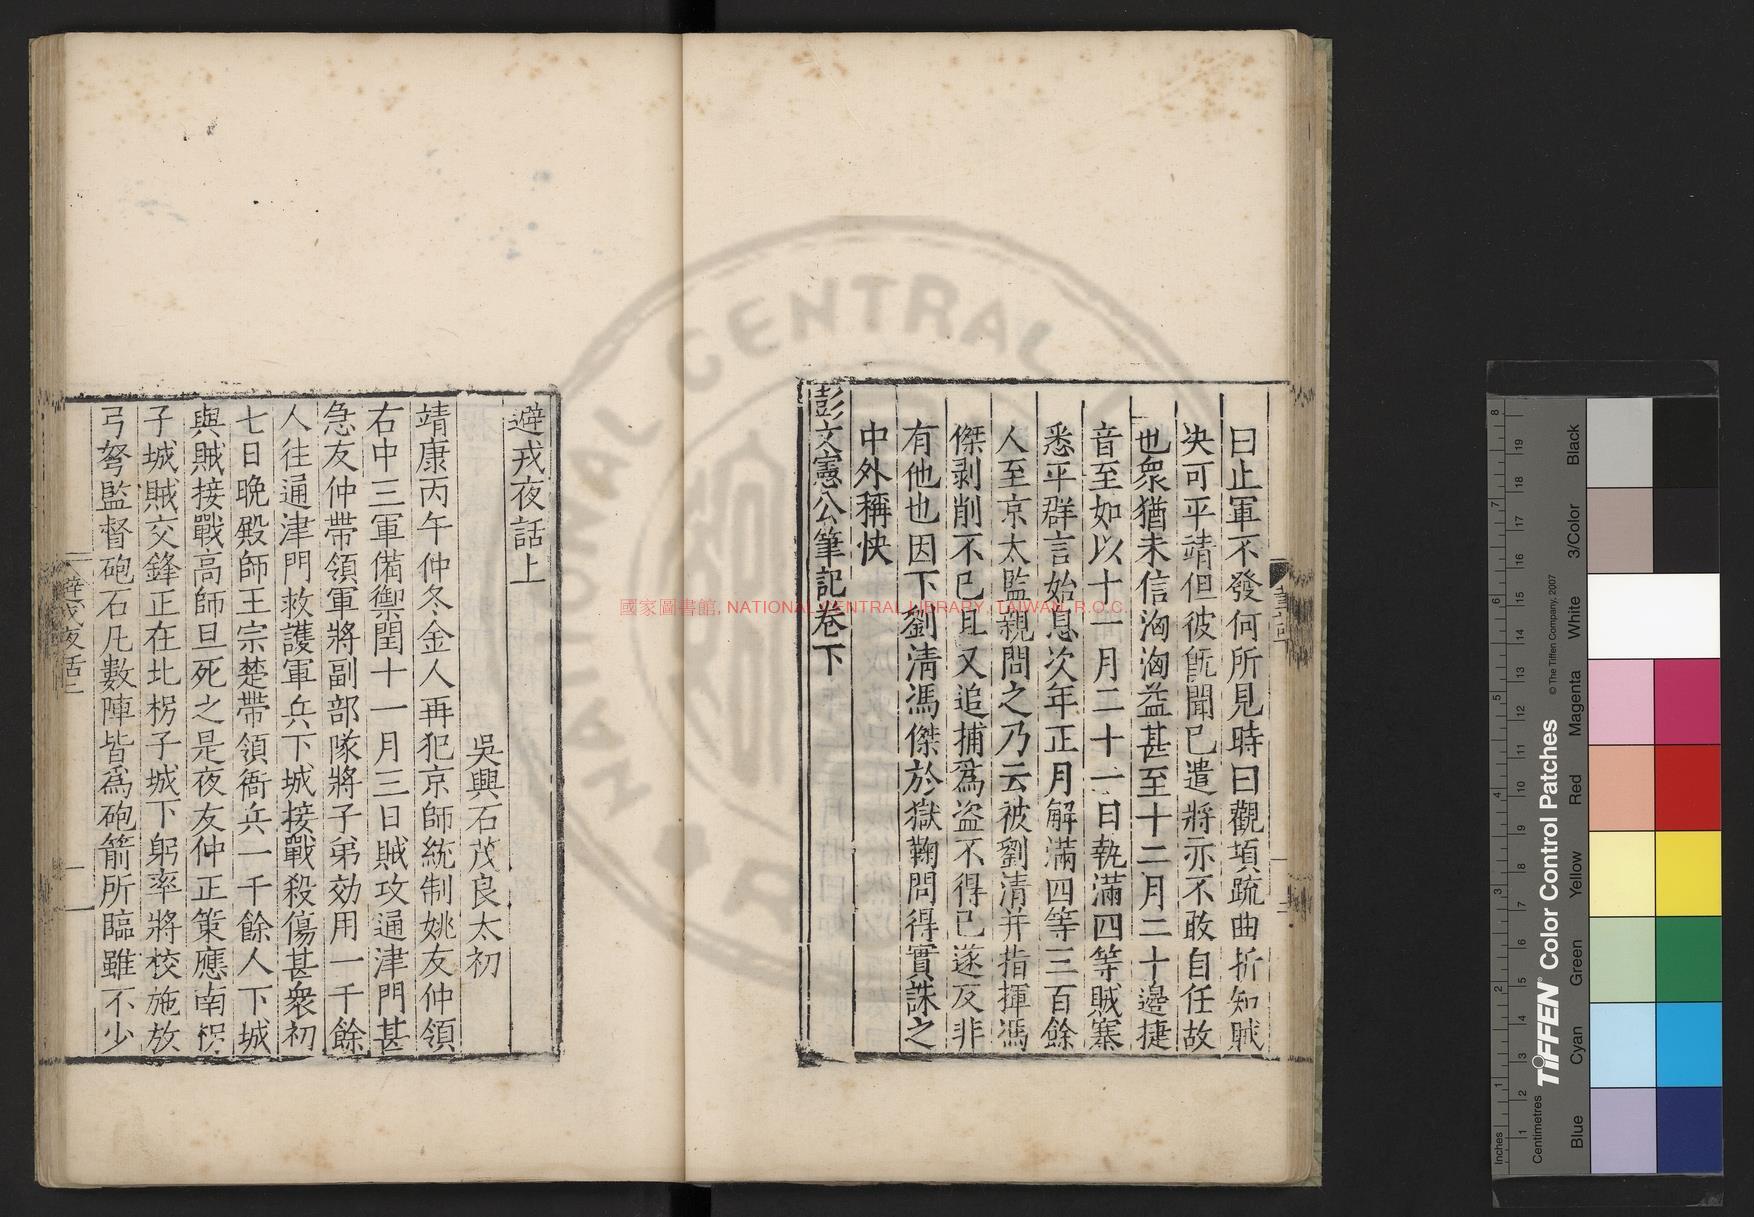 曰止軍不發何所見時曰觀項疏曲折知賊
决可平靖但彼既聞已遣將亦不敢自任故
也衆猶未信洶洶益甚至十二月三十邊捷
音至如以十一月二十一日執滿四等賊寨
悉平群言始息次年正月解滿四等三百餘
人至京太監親問之乃云被劉清并指揮馮
傑剥削不已且又追捕爲盗不得已遂反非
有他也因下劉清馮傑於獄鞫問得實誅之
中外稱快
彭文憲公筆記卷下
避戎夜話上
吳興石茂良太初
靖康丙午仲冬金人再犯京師統制姚友仲領
右中三軍備禦閏十一月三日賊攻通津門甚
急友仲帶領軍將副部隊將子弟効用一千餘
人往通津門救護軍兵下城接戰殺傷甚衆初
七日晩殿師王宗楚帶領衙兵一千餘人下城
與賊接戰高師旦死之是夜友仲正策應南拐
子城賊交鋒正在北拐子城下躬率將校施放
弓弩監督砲石凡數陣皆爲砲箭所臨雖不少
避戎夜話上
一
國家圖書館, NATIONAL CENTRAL LIBRARY, TAIWAN, R.O.C.
NATIONAL CENTRAL
TIFFEN® Color Control Patches
© The Tiffen Company, 2007
Inches
Centimetres
Blue
Cyan
Green
Yellow
Red
Magenta
White
3/Color
Black